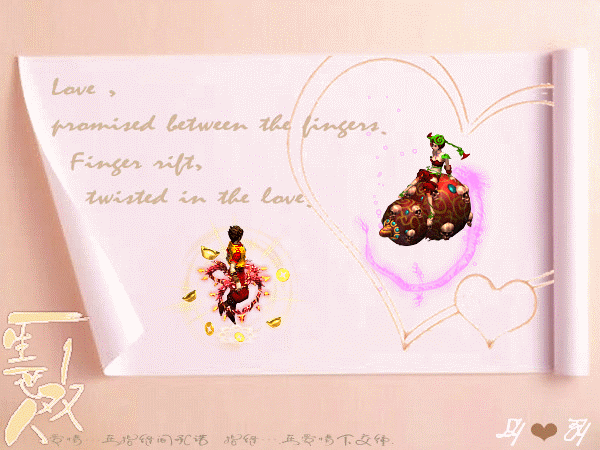 Love ,
promised between the fingers.
Finger rift,
twisted in the love.
爱情…在指缝间承诺 指缝…在爱情下交缠.